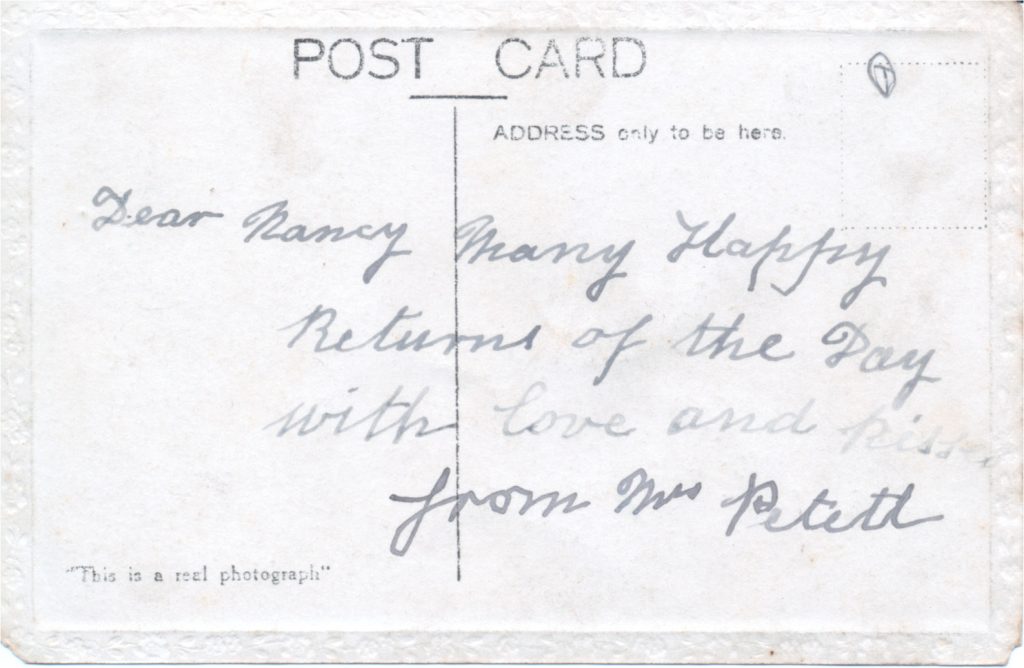 POST CARD
ADDRESS only to be here.
Dear Nancy Many Happy
Returns of the Day
with love and kisses
from Mrs Petett
"This is a real photograph"